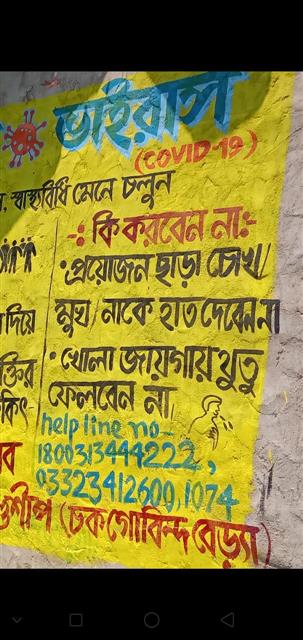 ভাইরাস
(COVID-19)
স্বাস্থ্যবিধি মেনে চলুন
-: কি করবেন না:-
• প্রয়োজন ছাড়া চোখ/
মুখ/নাকে হাত দেবেন না
দিয়ে
• খোলা জায়গায় থুতু
ফেলবেন না
ক্তির
কিৎ-
help line no-
1800313444222,
03323412600,1074
(চকগোবিন্দ বেড়্যা)